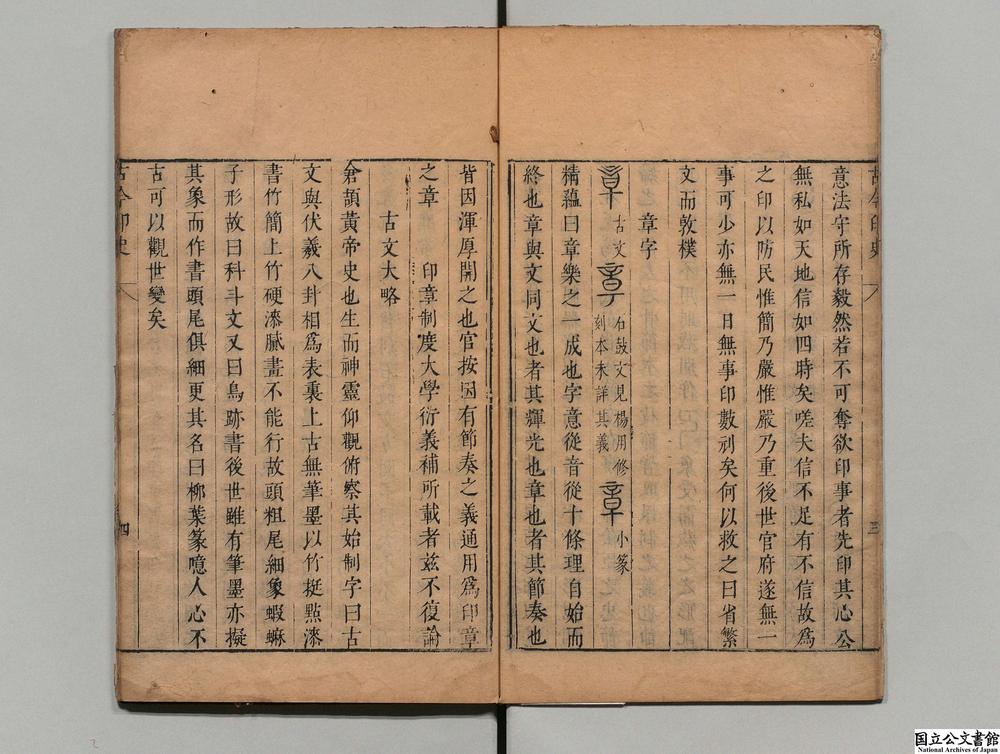 古今印史
三
意法守所存毅然若不可奪欲印事者先印其心公
無私如天地信如四時矣嗟夫信不足有不信故為
之印以防民惟簡乃嚴惟嚴乃重後世官府遂無一
事可少亦無一日無事印數刓矣何以救之曰省繁
文而敦樸
章字
古文
石鼓文見楊用修
刻本未詳其義
章
小篆
精蘊曰章樂之一成也字意從音從十條理自始而
終也章與文同文也者其輝光也章也者其節奏也
皆因渾厚開之也官按因有節奏之義通用爲印章
之章 印章制度大學衍義補所載者茲不復論
古文大略
倉頡黃帝史也生而神靈仰觀俯察其始制字曰古
文與伏羲八卦相爲表裏上古無筆墨以竹挺點漆
書竹簡上竹硬漆膩畫不能行故頭粗尾細象蝦蟆
子形故曰科斗文又曰鳥跡書後世雖有筆墨亦擬
其象而作書頭尾俱細更其名曰柳葉篆噫人心不
古可以觀世變矣
古今印史
四
国立公文書館
National Archives of Japan